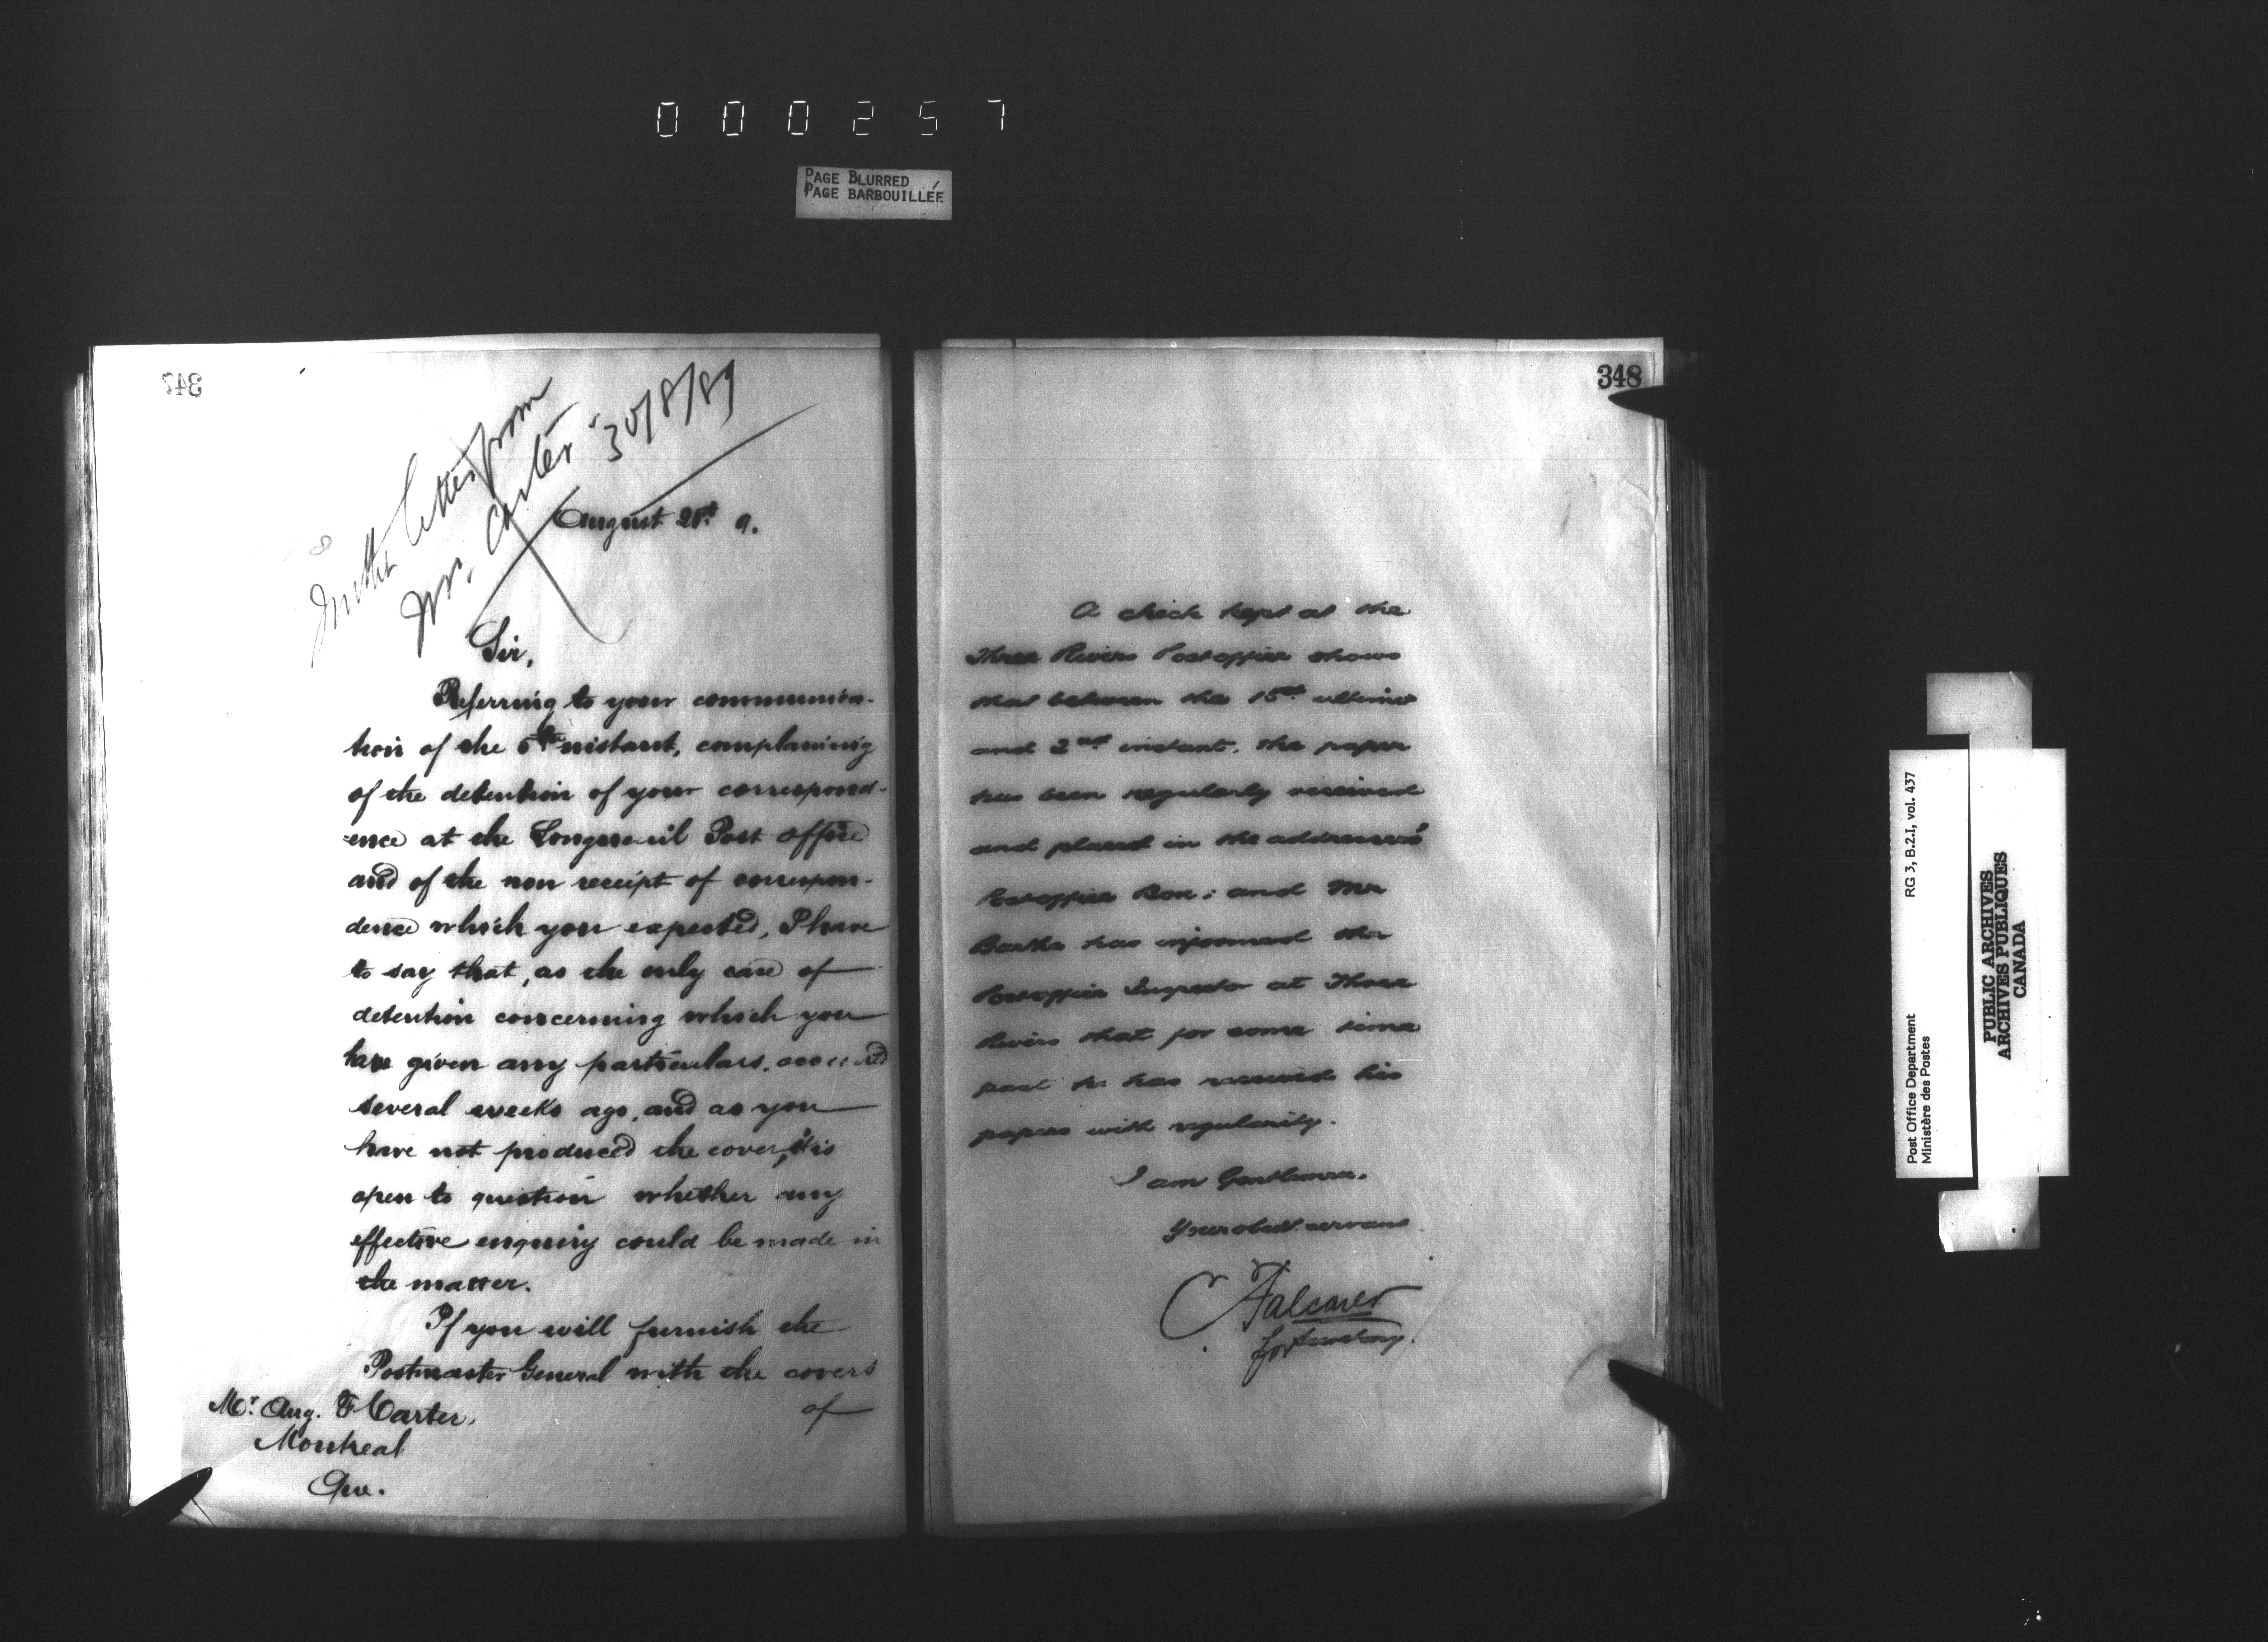 000257
PAGE BLURRED
PAGE BARBOUILLÉE
347
Further letter from
Mr. Carter 30/8/89
8
August 21st 9.
Sir,
Referring to your communica-
tion of the 5th instant, complaining
of the detention of your correspond-
-ence at the Longueuil Post Office
and of the non receipt of correspon-
dence which you expected, I have
to say that, as the only case of
detention concerning which you
have given any particulars, occurred
several weeks ago, and as you
have not produced the cover, it is
open to question whether any
effective enquiry could be made in
the matter.
If you will furnish the
Postmaster General with the covers
of
Mr. Aug. F Carter,
Montreal
Que.
348
A check kept at the
Three Rivers Post office shows
that between the 15th ultimo
and 2nd instant, the paper
has been regularly received
and placed in the addressee's
Post office Box; and Mr
Barthe has informed the
Post office Inspector at Three
Rivers that for some time
past he has received his
papers with regularity.
I am Gentlemen,
Your obedt. servant
C Falconer
for Secretary.
Post Office Department
Ministère des Postes
RG 3, B.2.I, vol. 437
PUBLIC ARCHIVES
ARCHIVES PUBLIQUES
CANADA